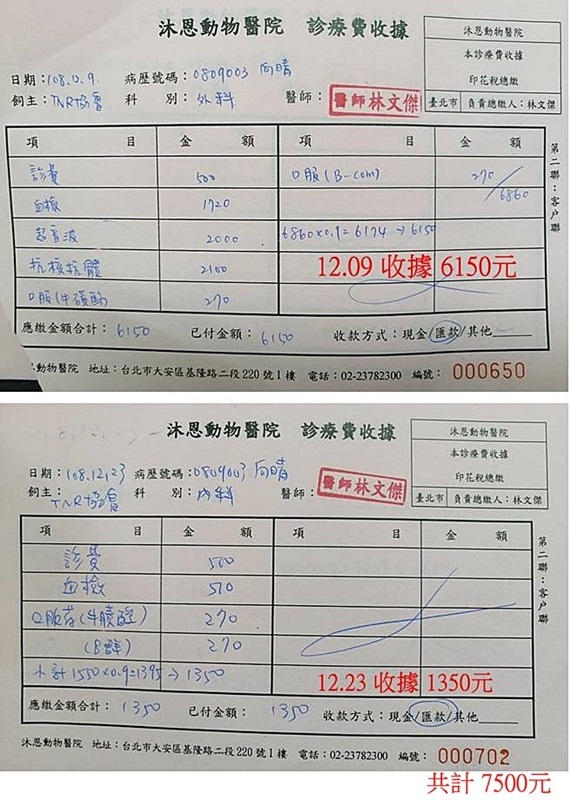 沐恩動物醫院 診療費收據
沐恩動物醫院
本診療費收據
印花稅總繳
臺北市 負責總繳人：林文傑
日期：108.12.9. 病歷號碼：0809003 向晴
飼主：TNR協會 科 別：外科 醫師：醫師林文傑
項 目 金 額 項 目 金 額
診費 500 口服(B-com) 270
血檢 1720 6860
超音波 2000 6860x0.9=6174→6150
抗核抗體 2100 12.09 收據 6150元
口服(牛磺酸 270
應繳金額合計：6150 已付金額：6150 收款方式：現金/匯款/其他
恩動物醫院 地址：台北市大安區基隆路二段220號1樓 電話：02-23782300 編號：000650
第二聯：客户聯
沐恩動物醫院 診療費收據
沐恩動物醫院
本診療費收據
印花稅總繳
臺北市 負責總繳人：林文傑
日期：108.12.23 病歷號碼：0809003 向晴
飼主：TNR協會 科 別：內科 醫師：醫師林文傑
項 目 金 額 項 目 金 額
診費 500
血檢 510
口服药(牛磺酸) 270
(B群) 270
小計1550x0.9=1395→1350 12.23 收據 1350元
應繳金額合計：1350 已付金額：1350 收款方式：現金/匯款/其他
沐恩動物醫院 地址：台北市大安區基隆路二段220號1樓 電話：02-23782300 編號：000702
第二聯：客户聯
共計 7500元